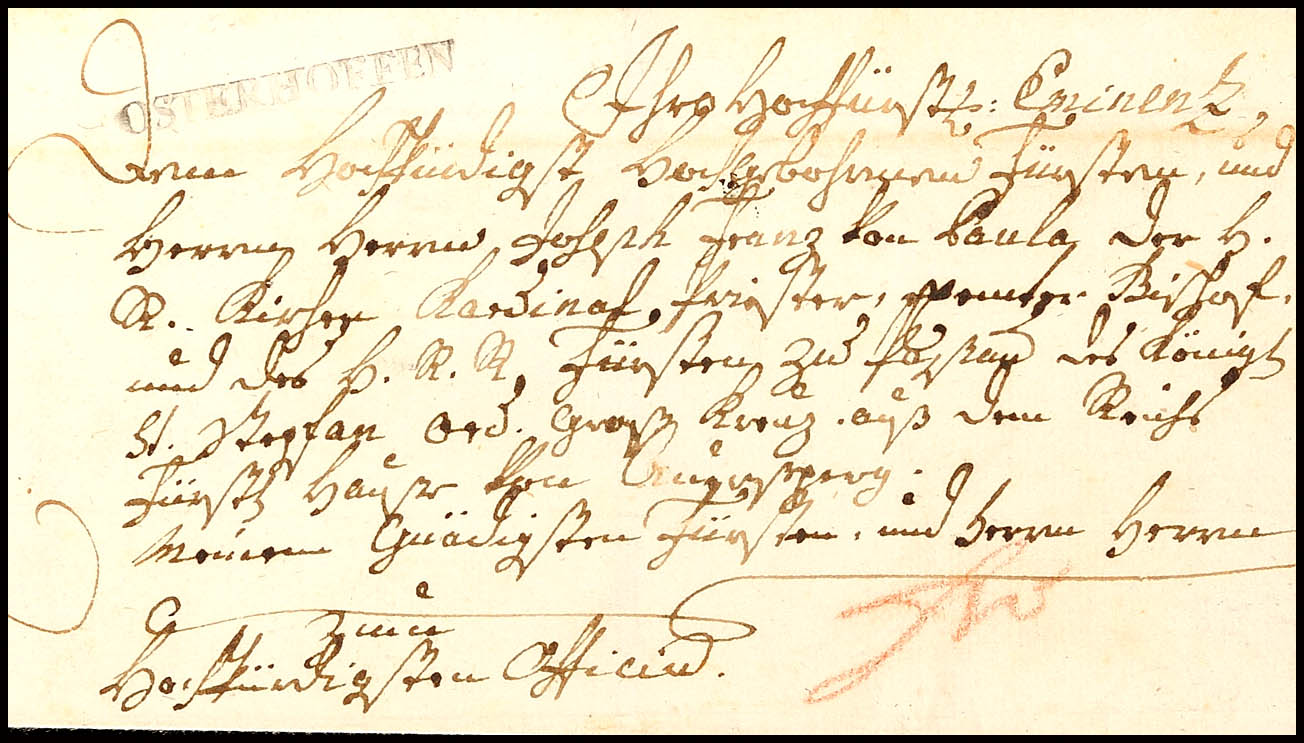 OSTERHOFFEN
Ihro Hochfürstl: Eminentz,
Dem Hochwürdigst Hochgebohrnen Fürsten, und
Herrn Herrn Joseph Franz von Paula der H.
R. Kirche Kardinal, Priester, Bischof,
und des H. R. R. Fürsten zu Passau des Königl
St. Stephan Ord. Groß Kreuz. auß dem Reichs
Fürstl Hauße von Auersperg.
Meinem Gnädigsten Fürsten, und Herrn Herrn
Zum
Hochwürdigsten Officium.